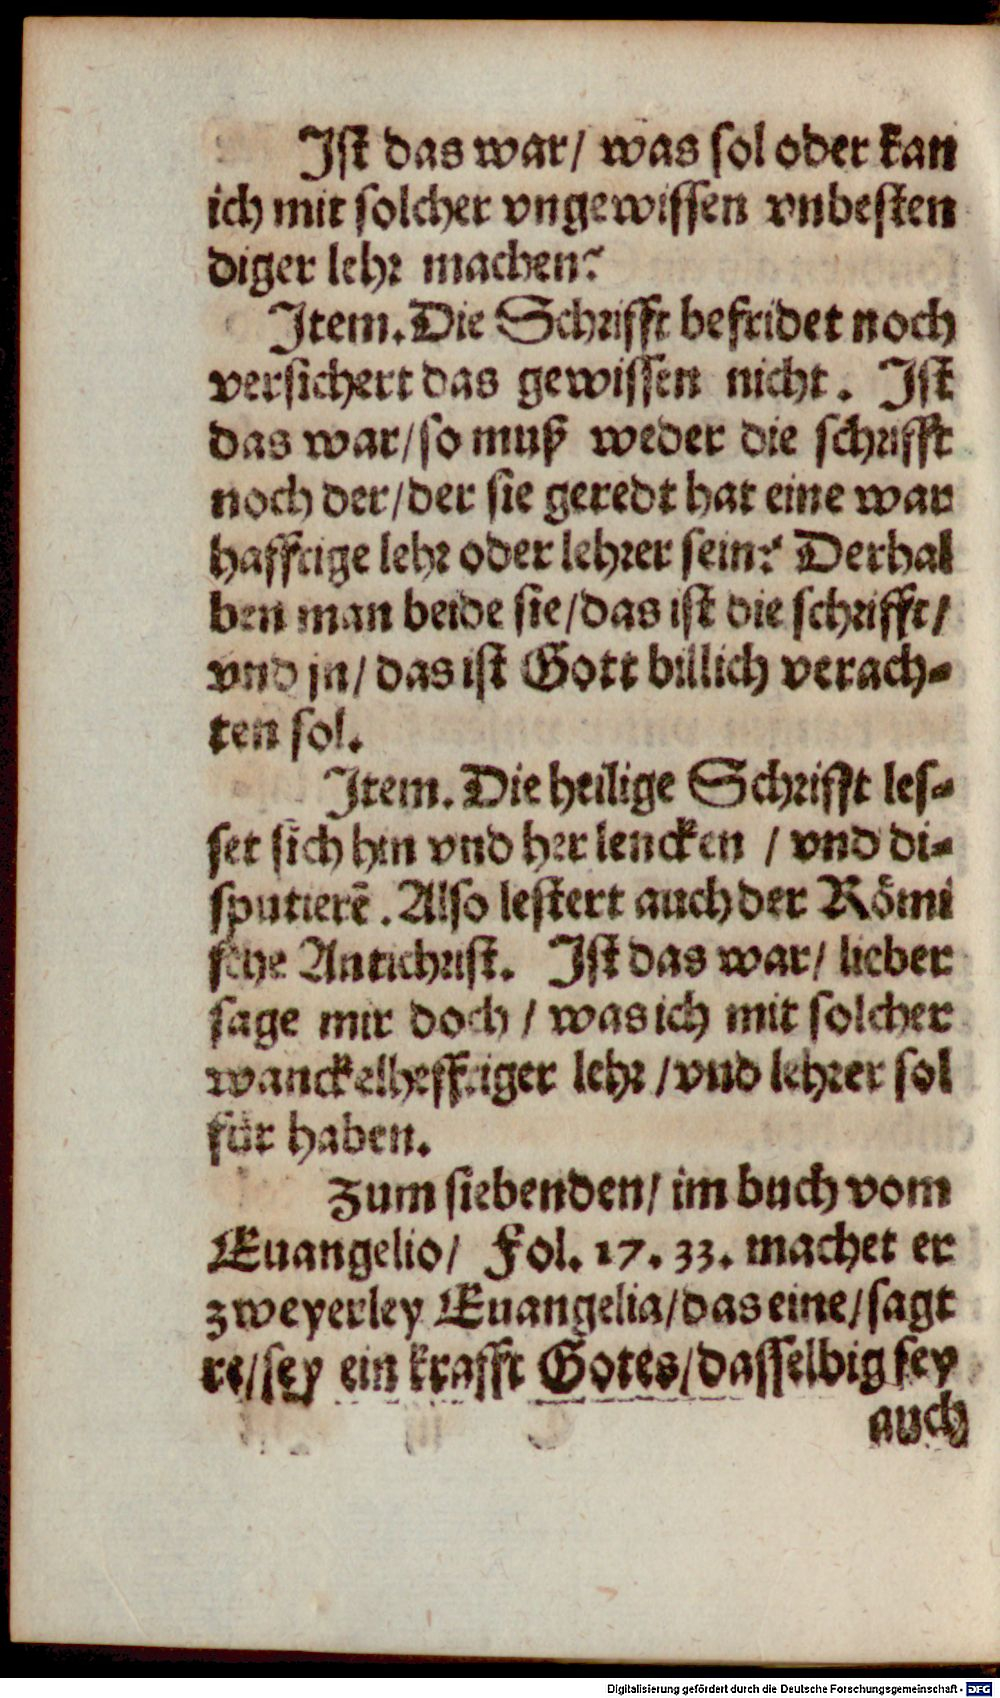 Ist das war/ was sol oder kan
ich mit solcher vngewissen vnbesten
diger lehr machen?
Item. Die Schrifft befridet noch
versichert das gewissen nicht. Ist
das war/ so muß weder die schrifft
noch der/ der sie geredt hat eine war
hafftige lehr oder lehrer sein? Derhal
ben man beide sie/ das ist die schrifft/
vnd jn/ das ist Gott billich verach-
ten sol.
Item. Die heilige Schrifft les-
set sich hin vnd her lencken / vnd di-
sputierē. Also lestert auch der Römi
sche Antichrist. Ist das war/ lieber
sage mir doch / was ich mit solcher
wanckelhefftiger lehr / vnd lehrer sol
für haben.
Zum siebenden/ im buch vom
Euangelio/ Fol. 17. 33. machet er
zweyerley Euangelia/ das eine/ sagt
re/ sey ein krafft Gotes/ dasselbig sey
auch
Digitalisierung gefördert durch die Deutsche Forschungsgemeinschaft - DFG